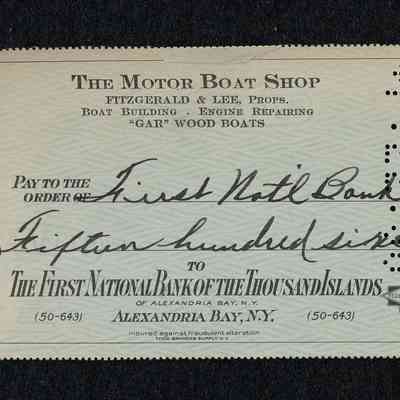 THE MOTOR BOAT SHOP
FITZGERALD & LEE, PROPS.
BOAT BUILDING . ENGINE REPAIRING
"GAR" WOOD BOATS
PAY TO THE
ORDER OF First Nat'l Bank
Fifteen hundred six
TO
THE FIRST NATIONAL BANK OF THE THOUSAND ISLANDS
OF ALEXANDRIA BAY, N.Y.
(50-643) ALEXANDRIA BAY, N.Y. (50-643)
insured against fraudulent alteration